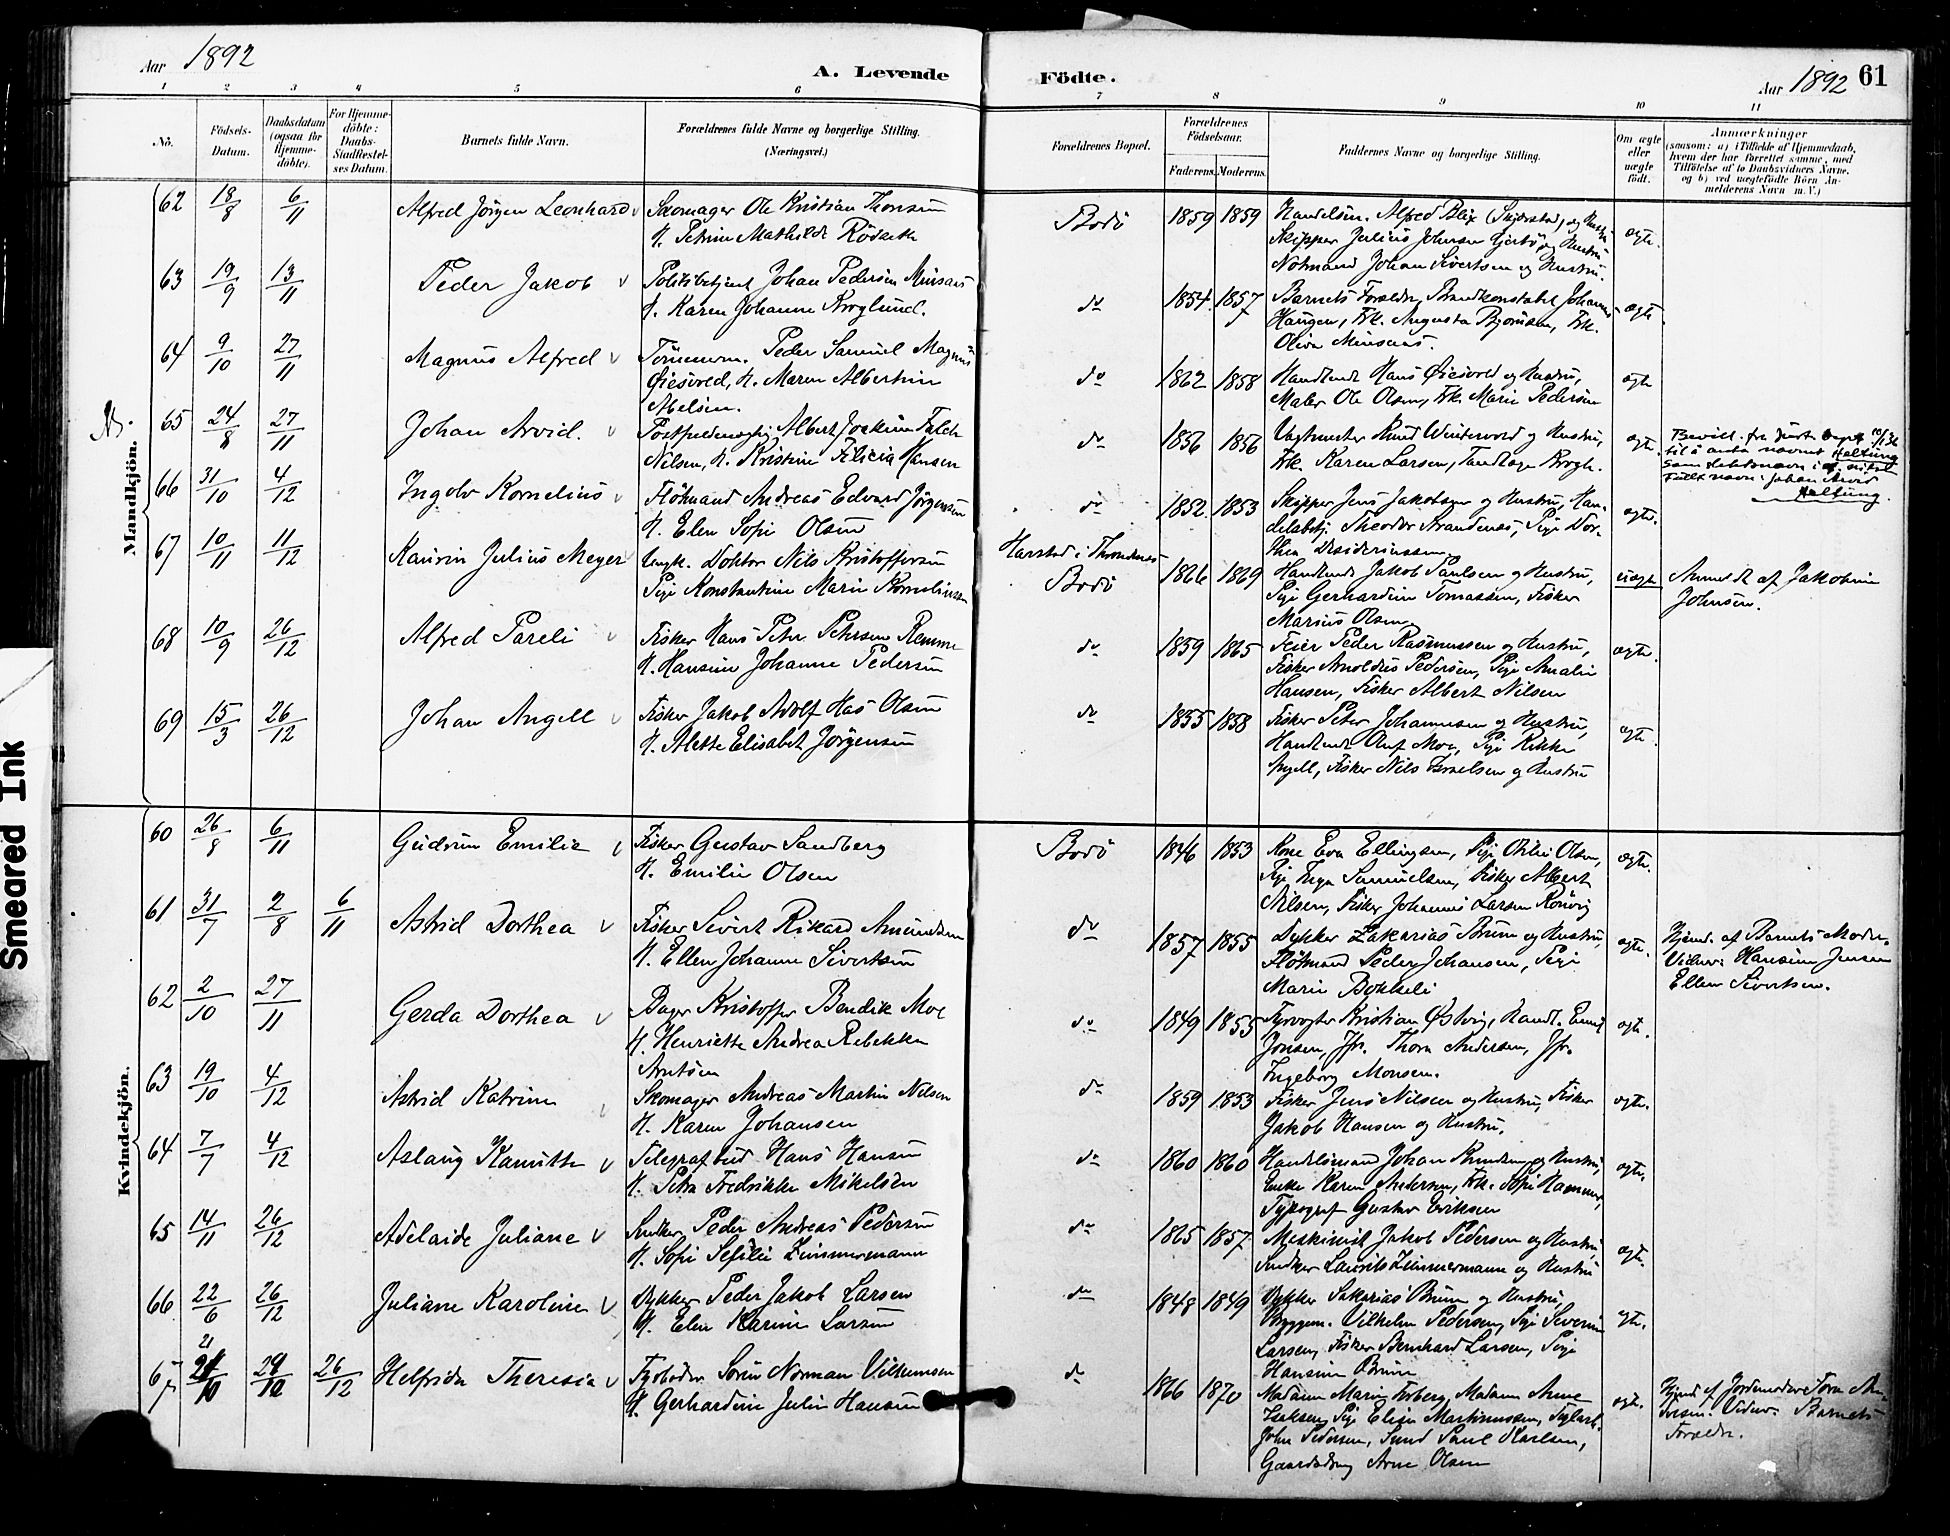 Smeared Ink
Aar 1892
A. Levende
Födte.
Aar 1892 61
1 2 3 4 5 6 7 8 9 10 11
No.
Födsels-
Datum.
Daabsdatum
(ogsaa för
Hjemme-
döbte).
For Hjemme-
döbte:
Daabs-
Stadfæstel-
ses Datum.
Barnets fulde Navn.
Forældrenes fulde Navne og borgerlige Stilling.
(Næringsvei.)
Forældrenes Bopæl.
Forældrenes
Födselsaar.
Faderens. Moderens.
Faddernes Navne og borgerlige Stilling.
Om ægte
eller
uægte
födt.
Anmærkninger
(saasom: a) i Tilfælde af Hjemmedaab,
hvem der har forrettet samme, med
Tilföielse af to Daabsvidners Navne.
og b) ved uægtefödte Börn An-
melderens Navn m. V.)
Mandkjön.
62 18/8 6/11 Alfred Jörgen Leonhard Skomager Ole Kristian Thorsen Bodö 1859 1859 Handelsm. Alfred Blix (Skjærstad) og Hustru ægte.
H. Petrine Mathilde Rödseth Skipper Julius Johnsen Gjertö og Hustru
Notmand Johan Sivertsen og Hustru.
63 19/9 13/11 Peder Jakob Politibetjent Johan Pedersen Minsaas do 1854 1857 Barnets Forældre, Brandkonstabel Johannes ægte
H. Karen Johanne Kroglund. Haugen, Frk. Augusta Bjornsen, Frk.
Oliva Minsaas.
64 9/10 27/11 Magnus Alfred Tömmerm. Peder Samuel Magnus do 1862 1858 Handlende Hans Øiesvold og Hustru, ægte
Øiesvold, H. Maren Albertine Maler Ole Olsen, Frk. Marie Pedersen
Abelsen.
Nb. 65 24/8 27/11 Johan Arvid. Albert Joakim Falch do 1856 1856 Vagtmester Knud Wintervold og Hustru, ægte.
Nilsen, H. Kristine Felicia Hansen Frk. Karen Larsen, Tandlæge Krogh.
Bevill. fra Just. dept
til å anta navnet Heltung
som slektsnavn
Fullt navn: Johan Arvid
Heltung.
66 31/10 4/12 Ingolv Kornelius Flötmand Andreas Edvard Jörgensen do 1852. 1853 Skipper Jens Jakobsen og Hustru, Han- ægte.
H. Elen Sofie Olsen delsbetj. Theodor Strandenæs, Pige Dor-
thea Desideriussen
67 10/11 11/12 Kaurin Julius Meyer Ungk. Doktor Nils Kristoffersen Harstad i Throndenes 1866 1869 Handlende Jakob Paulsen og Hustru, uægte Anmeldt af Jakobine
Pige Konstantine Marie Korneliussen Bodö Pige Gerhardine Tomassen, Fisker Johnsen.
Marius Olsen
68 10/9 26/12 Alfred Pareli Fisker Hans Peter Petersen Remme do 1859 1865 Feier Peder Rasmussen og Hustru, ægte.
H. Hansine Johanne Pedersen Fisker Arnoldus Pedersen, Pige Amalie
Hansen, Fisker Albert Nilsen
69 15/3 26/12 Johan Angell Fisker Jakob Adolf Has Olsen do 1855 1858 Fisker Peter Johannesen og Hustru, ægte.
H. Alette Elisabet Jörgensen Handlende Oluf Moe, Pige Rikke
Angell, Fisker Nils Israelsen og Hustru
Kvindekjön.
60 26/8 6/11 Gudrun Emilie Fisker Gustav Sandberg Bodö 1846 1853 Kone Eva Ellingsen, Pige Otilie Olsen, ægte.
H. Emilie Olsen Pige Inga Samuelsen, Fisker Albert
Nilsen, Fisker Johannes Larsen Rönvig
61 31/7 2/8 6/11 Astrid Dorthea Fisker Sivert Rikard Amundsen do 1857 1855 Dykker Zakarias Bruun og Hustru, ægte. Hjemd. af Barnets Moder.
H. Ellen Johanne Sivertsen Flötmand Peder Johansen, Pige Vidner: Hansine Jensen
Marie Bokkeli Ellen Sivertsen.
62 2/10 27/11 Gerda Dorthea Bager Kristoffer Bendik Moe do 1849 1855 Fyrvogter Kristian Østvig, Handl. Emil ægte.
H. Henriette Andrea Rebekka Jonsen, Jfr. Thora Andersen, Jfr.
Arntsen Ingeborg Monsen.
63 19/10 4/12 Astrid Katrine Skomager Andreas Martin Nilsen do 1859 1853 Fisker Jens Nilsen og Hustru, Fisker ægte.
H. Karen Johansen Jakob Hansen og Hustru.
64 7/7 4/12 Aslaug Kamitte Telegrafbud Hans Hansen do 1860 1860 Handelsmand Johan Knudsen og Hustru, ægte.
H. Petra Fredrikke Mikelsen Enke Karen Andersen, Frk. Sofie Hammer,
Typograf Gustav Eriksen
65 14/11 26/12 Adelaide Juliane Snekker Peder Andreas Pedersen do 1865 1857 Maskinist Jakob Pedersen og Hustru, ægte.
H. Sofie Sefilie Zimmermann Snedker Laurits Zimmermann og Hustru
66 22/6 26/12 Juliane Karoline Dykker Peder Jakob Larsen do 1848 1849 Dykker Sakarias Bruun og Hustru, ægte.
H. Elen Karine Larsen Bryggem. Vilhelm Pedersen, Pige Severine
Larsen, Fisker Bernhard Larsen, Pige
Hansine Bruun
67 21/10 29/10 26/12 Helfrida Theresia Fyrböder Sören Norman Vilhumsen do 1866 1870 Madam Marie Arberg, Madam Anne ægte. Hjemd af Jordemoder Tora An-
H. Gerhardine Julie Hansen Isaksen, Pige Elise Martinussen, dresen. Vidner: Barnets
John Pedersen, Smed Paul Karlsen, Forældre.
Gaardsdreng Arne Olsen